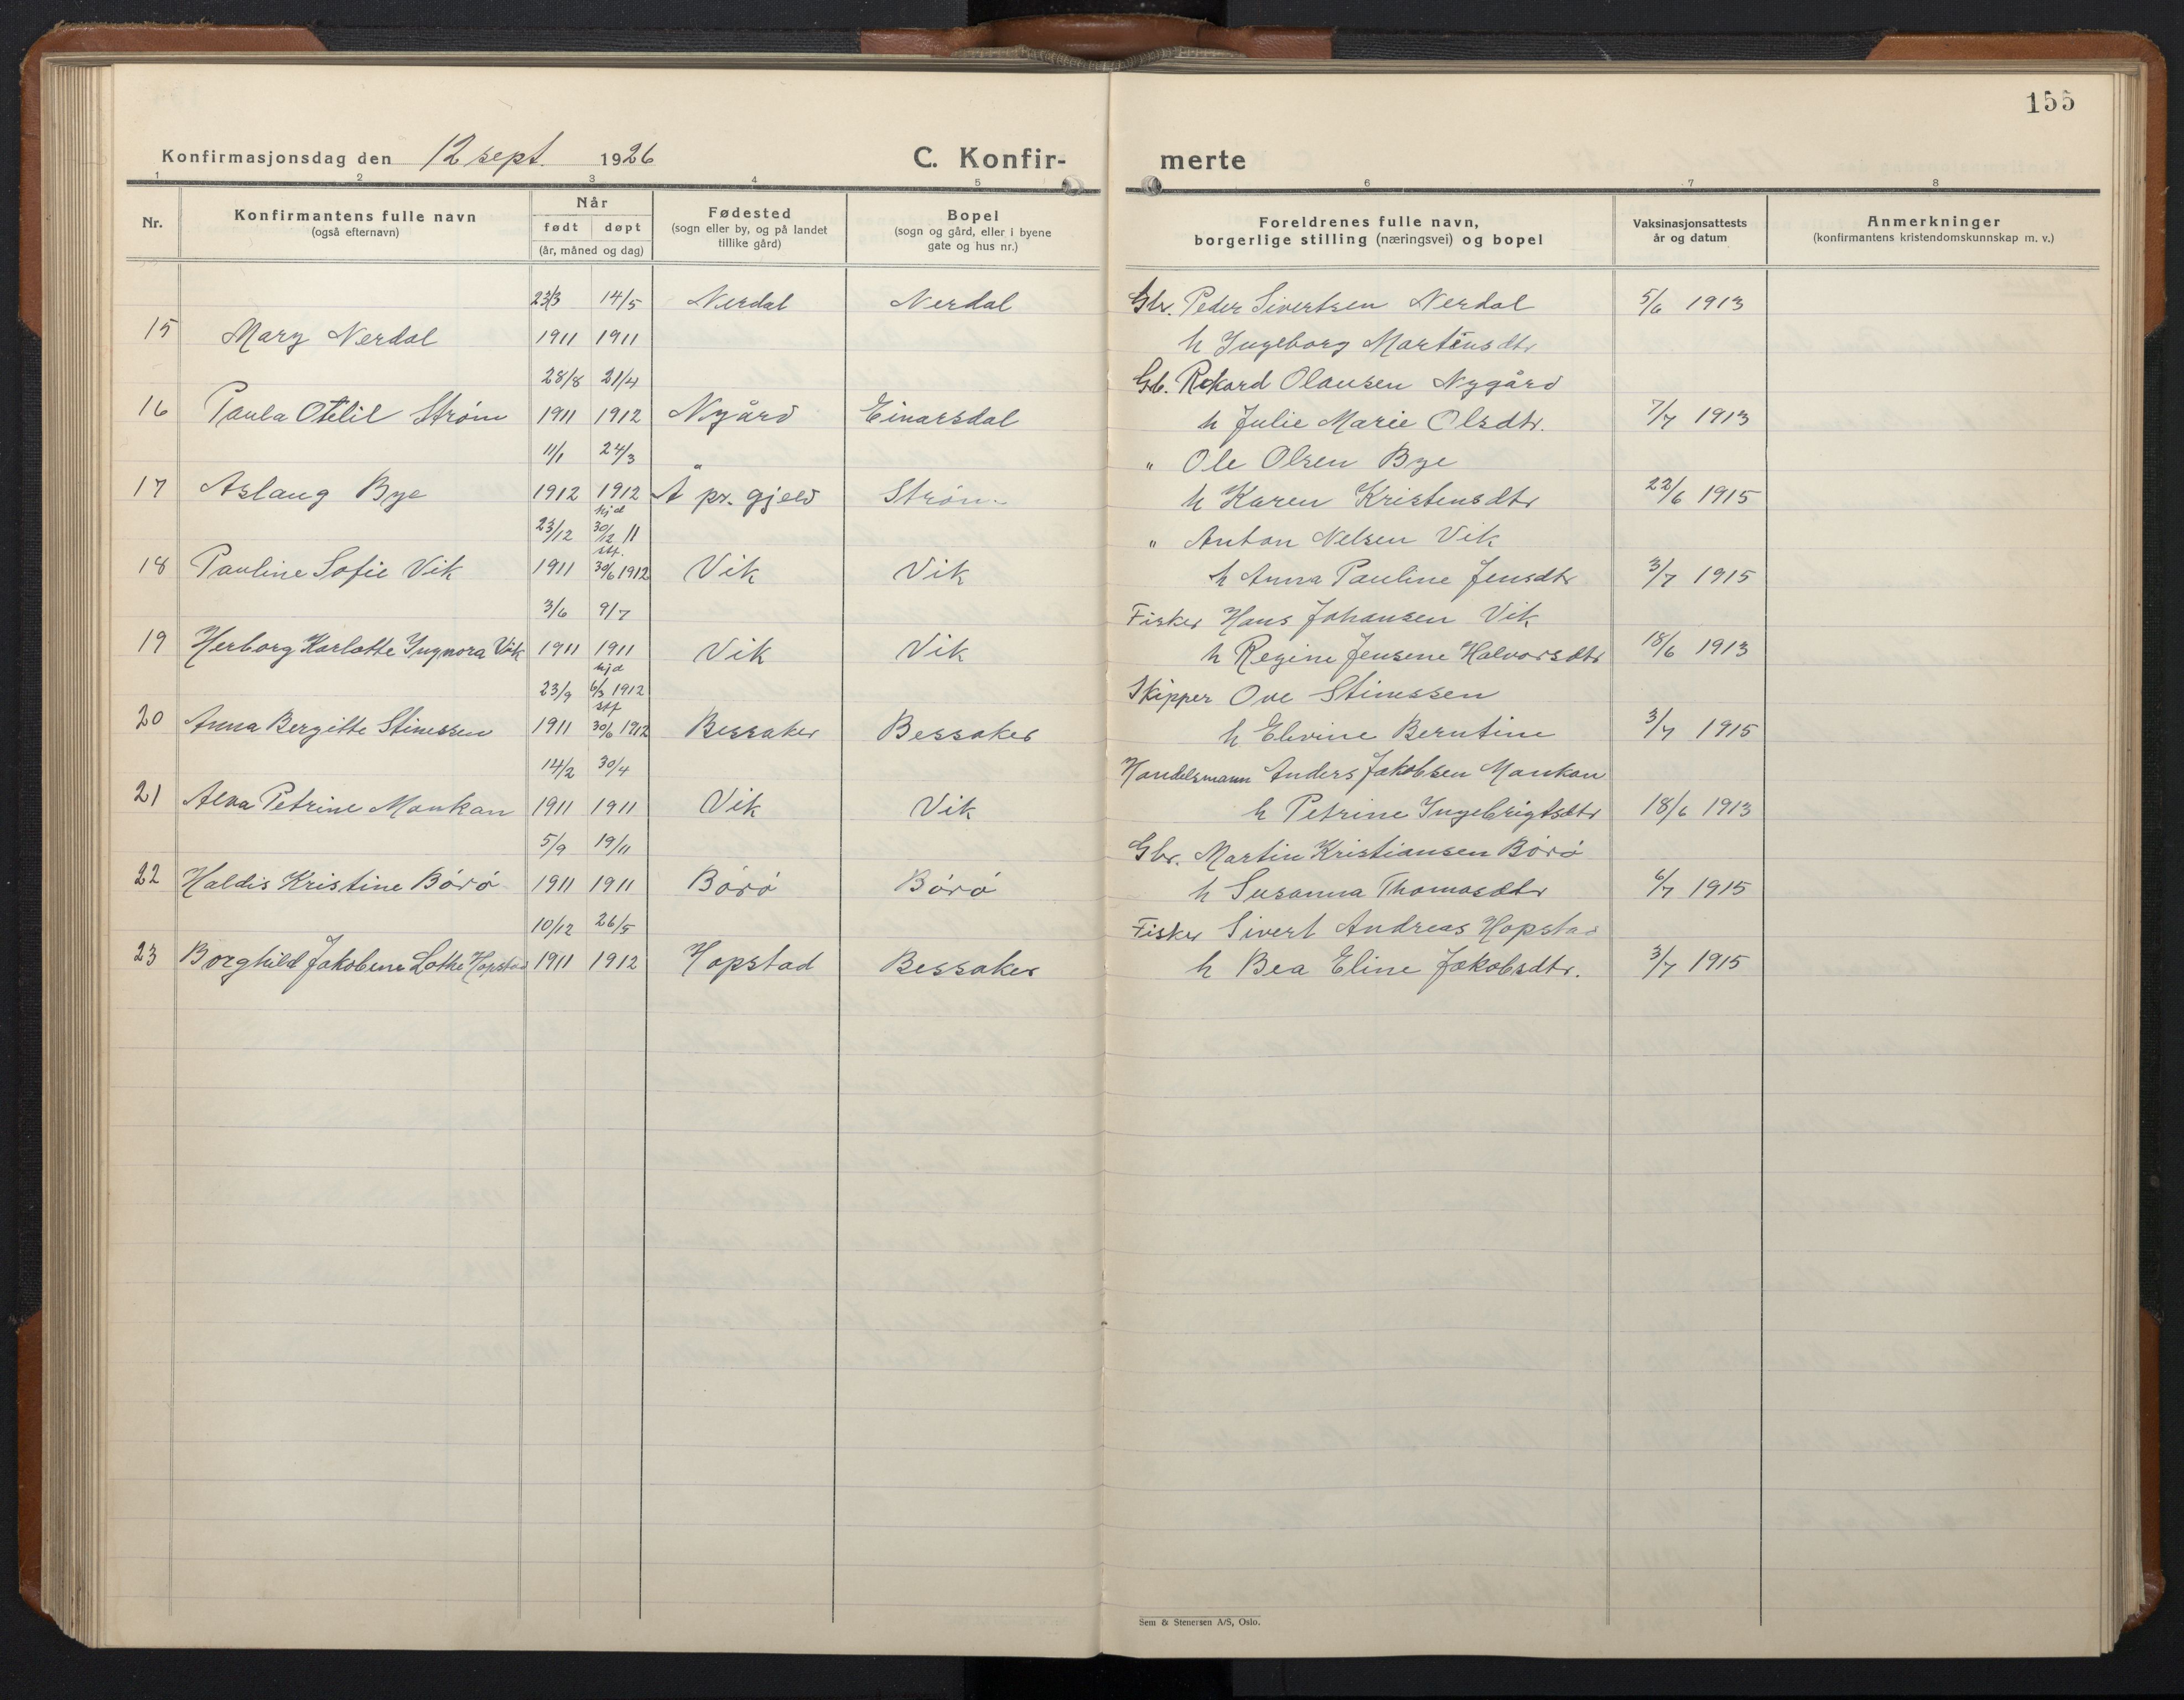 155
Konfirmasjonsdag den 12 sept. 1926 C. Konfir- merte
1 2 3 4 5 6 7 8
Nr. Konfirmantens fulle navn (også efternavn) Når født døpt (år, måned og dag) Fødested (sogn eller by, og på landet tillike gård) Bopel (sogn og gård, eller i byene gate og hus nr.) Foreldrenes fulle navn, borgerlige stilling (næringsvei) og bopel Vaksinasjonsattests år og datum Anmerkninger (konfirmantens kristendomskunnskap m. v.)
23/3 14/5 Nerdal Nerdal Gbr. Peder Sivertsen Nerdal 5/6 1913
15 Mary Nerdal 1911 1911 h Ingeborg Martinsdtr
28/8 21/4 Gb. Rikard Olausen Nygård
16 Paula Otelil Strøm 1911 1912 Nygård Einarsdal h Julie Marie Olsdtr. 7/7 1913
11/1 24/3 " Ole Olsen Bye
17 Aslaug Bye 1912 1912 Å pr. gjeld Strøm h Karen Kristensdtr 22/6 1915
23/12 hjd 30/12 11 " Anton Nelsen Vik
18 Pauline Sofie Vik 1911 stf. 30/6 1912 Vik Vik h Anna Pauline Jensdtr 3/7 1915
3/6 9/7 Fisker Hans Johansen Vik
19 Herborg Karlotte Ingnora Vik 1911 1911 Vik Vik h Regine Jensene Halvorsdtr 18/6 1913
23/9 hjd 6/3 1912 Skipper Ove Stinessen
20 Anna Bergitte Stinessen 1911 stf 30/6 1912 Bessaker Bessaker h Elevine Berntine 3/7 1915
14/2 30/4 Handelsmann Anders Jakobsen Mankan
21 Alva Petrine Mankan 1911 1911 Vik Vik h Petrine Ingebrigtsdtr 18/6 1913
5/9 19/11 Gbr. Martin Kristiansen Børø
22 Haldis Kristine Børø 1911 1911 Børø Børø h Susanna Thomasdtr 6/7 1915
10/12 26/5 Fisker Sivert Andreas Hopstad
23 Borghild Jakobene Lothe Hopstad 1911 1912 Hopstad Bessaker h Bea Eline Jakobsdtr. 3/7 1915
Sem & Stenersen A/S, Oslo.